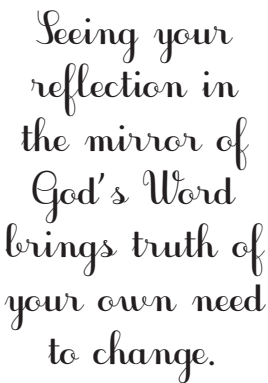 Seeing your
reflection in
the mirror of
God's Word
brings truth of
your own need
to change.